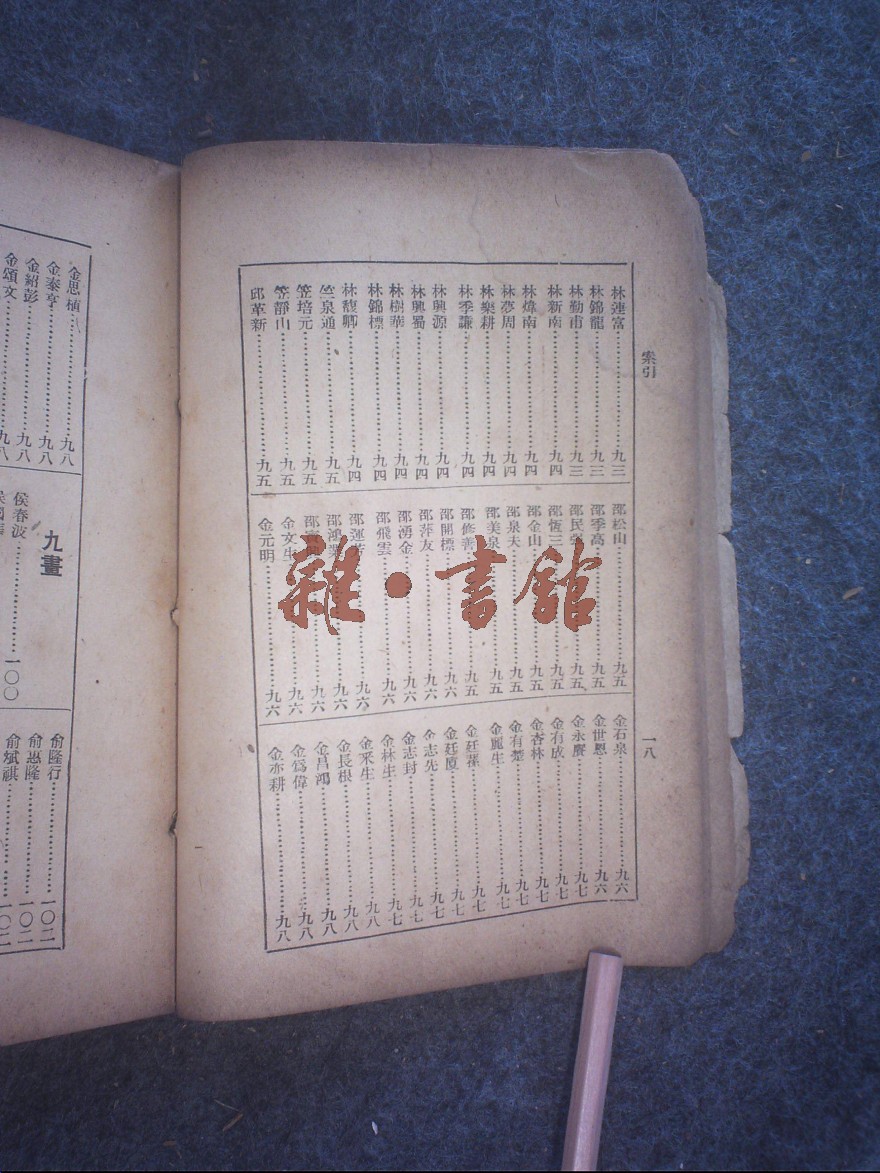 索引
一八
林連富……九三
林錦龍……九三
林勤甫……九三
林新南……九四
林煒南……九四
林夢周……九四
林樂耕……九四
林季謙……九四
林興源……九四
林興蜀……九四
林樹華……九四
林錦標……九四
林馥卿……九四
竺泉通……九五
笠培元……九五
笠靜山……九五
邱革新……九五
邵松山……九五
邵季高……九五
邵民……九五
邵恆三……九五
邵金山……九五
邵泉夫……九五
邵美泉……九五
邵修善……九五
邵開標……九六
邵萍友……九六
邵湧金……九六
邵飛雲……九六
邵運……九六
邵鴻……九六
邵……九六
金文生……九六
金元明……九六
金石泉……九六
金世恩……九六
金永賡……九七
金有成……九七
金杏林……九七
金有楚……九七
金麗生……九七
金廷……九七
金廷廈……九七
金志先……九七
金志封……九七
金林生……九七
金釆生……九八
金長根……九八
金昌鴻……九八
金爲偉……九八
金亦耕……九八
金思植……九八
金泰亨……九八
金紹彭……九八
金頌文……九八
九畫
侯春波……一〇〇
俞隆行……一〇二
俞惠隆……一〇二
俞斌祺……一〇二
雜·書館